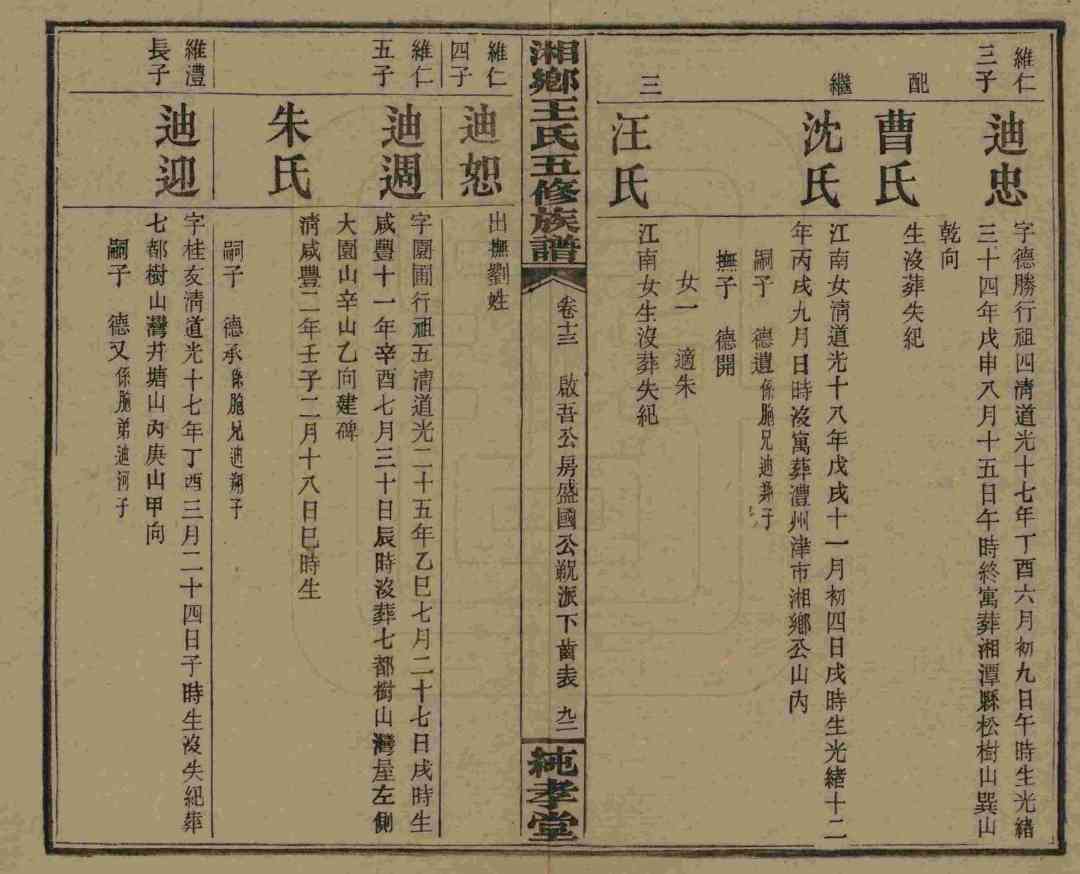 維仁
三子
迪忠
字德勝行祖四清道光十七年丁酉六月初九日午時生光緒
三十四年戊申八月十五日午時終寓葬湘潭縣松樹山巽山
乾向
配
曹氏
生沒葬失紀
繼
沈氏
江南女清道光十八年戊戌十一月初四日戌時生光緒十二
年丙戌九月日時沒寓葬澧州津市湘鄉公山內
嗣子 德遺係胞兄迪彝子
撫子 德開
女一 適朱
三
汪氏
江南女生沒葬失紀
湘鄉王氏五修族譜
卷十三 啟吾公房盛國公祝派下齒表 九二
純孝堂
維仁
四子
迪恕
出撫劉姓
維仁
五子
迪週
字園圃行祖五清道光二十五年乙巳七月二十七日戌時生
咸豐十一年辛酉七月三十日辰時沒葬七都樹山灣屋左側
大園山辛山乙向建碑
朱氏
清咸豐二年壬子二月十八日巳時生
嗣子 德承係胞兄迪翔子
維澧
長子
迪迎
字桂友清道光十七年丁酉三月二十四日子時生沒失紀葬
七都樹山灣井塘山內庚山甲向
嗣子 德又係胞弟迪河子